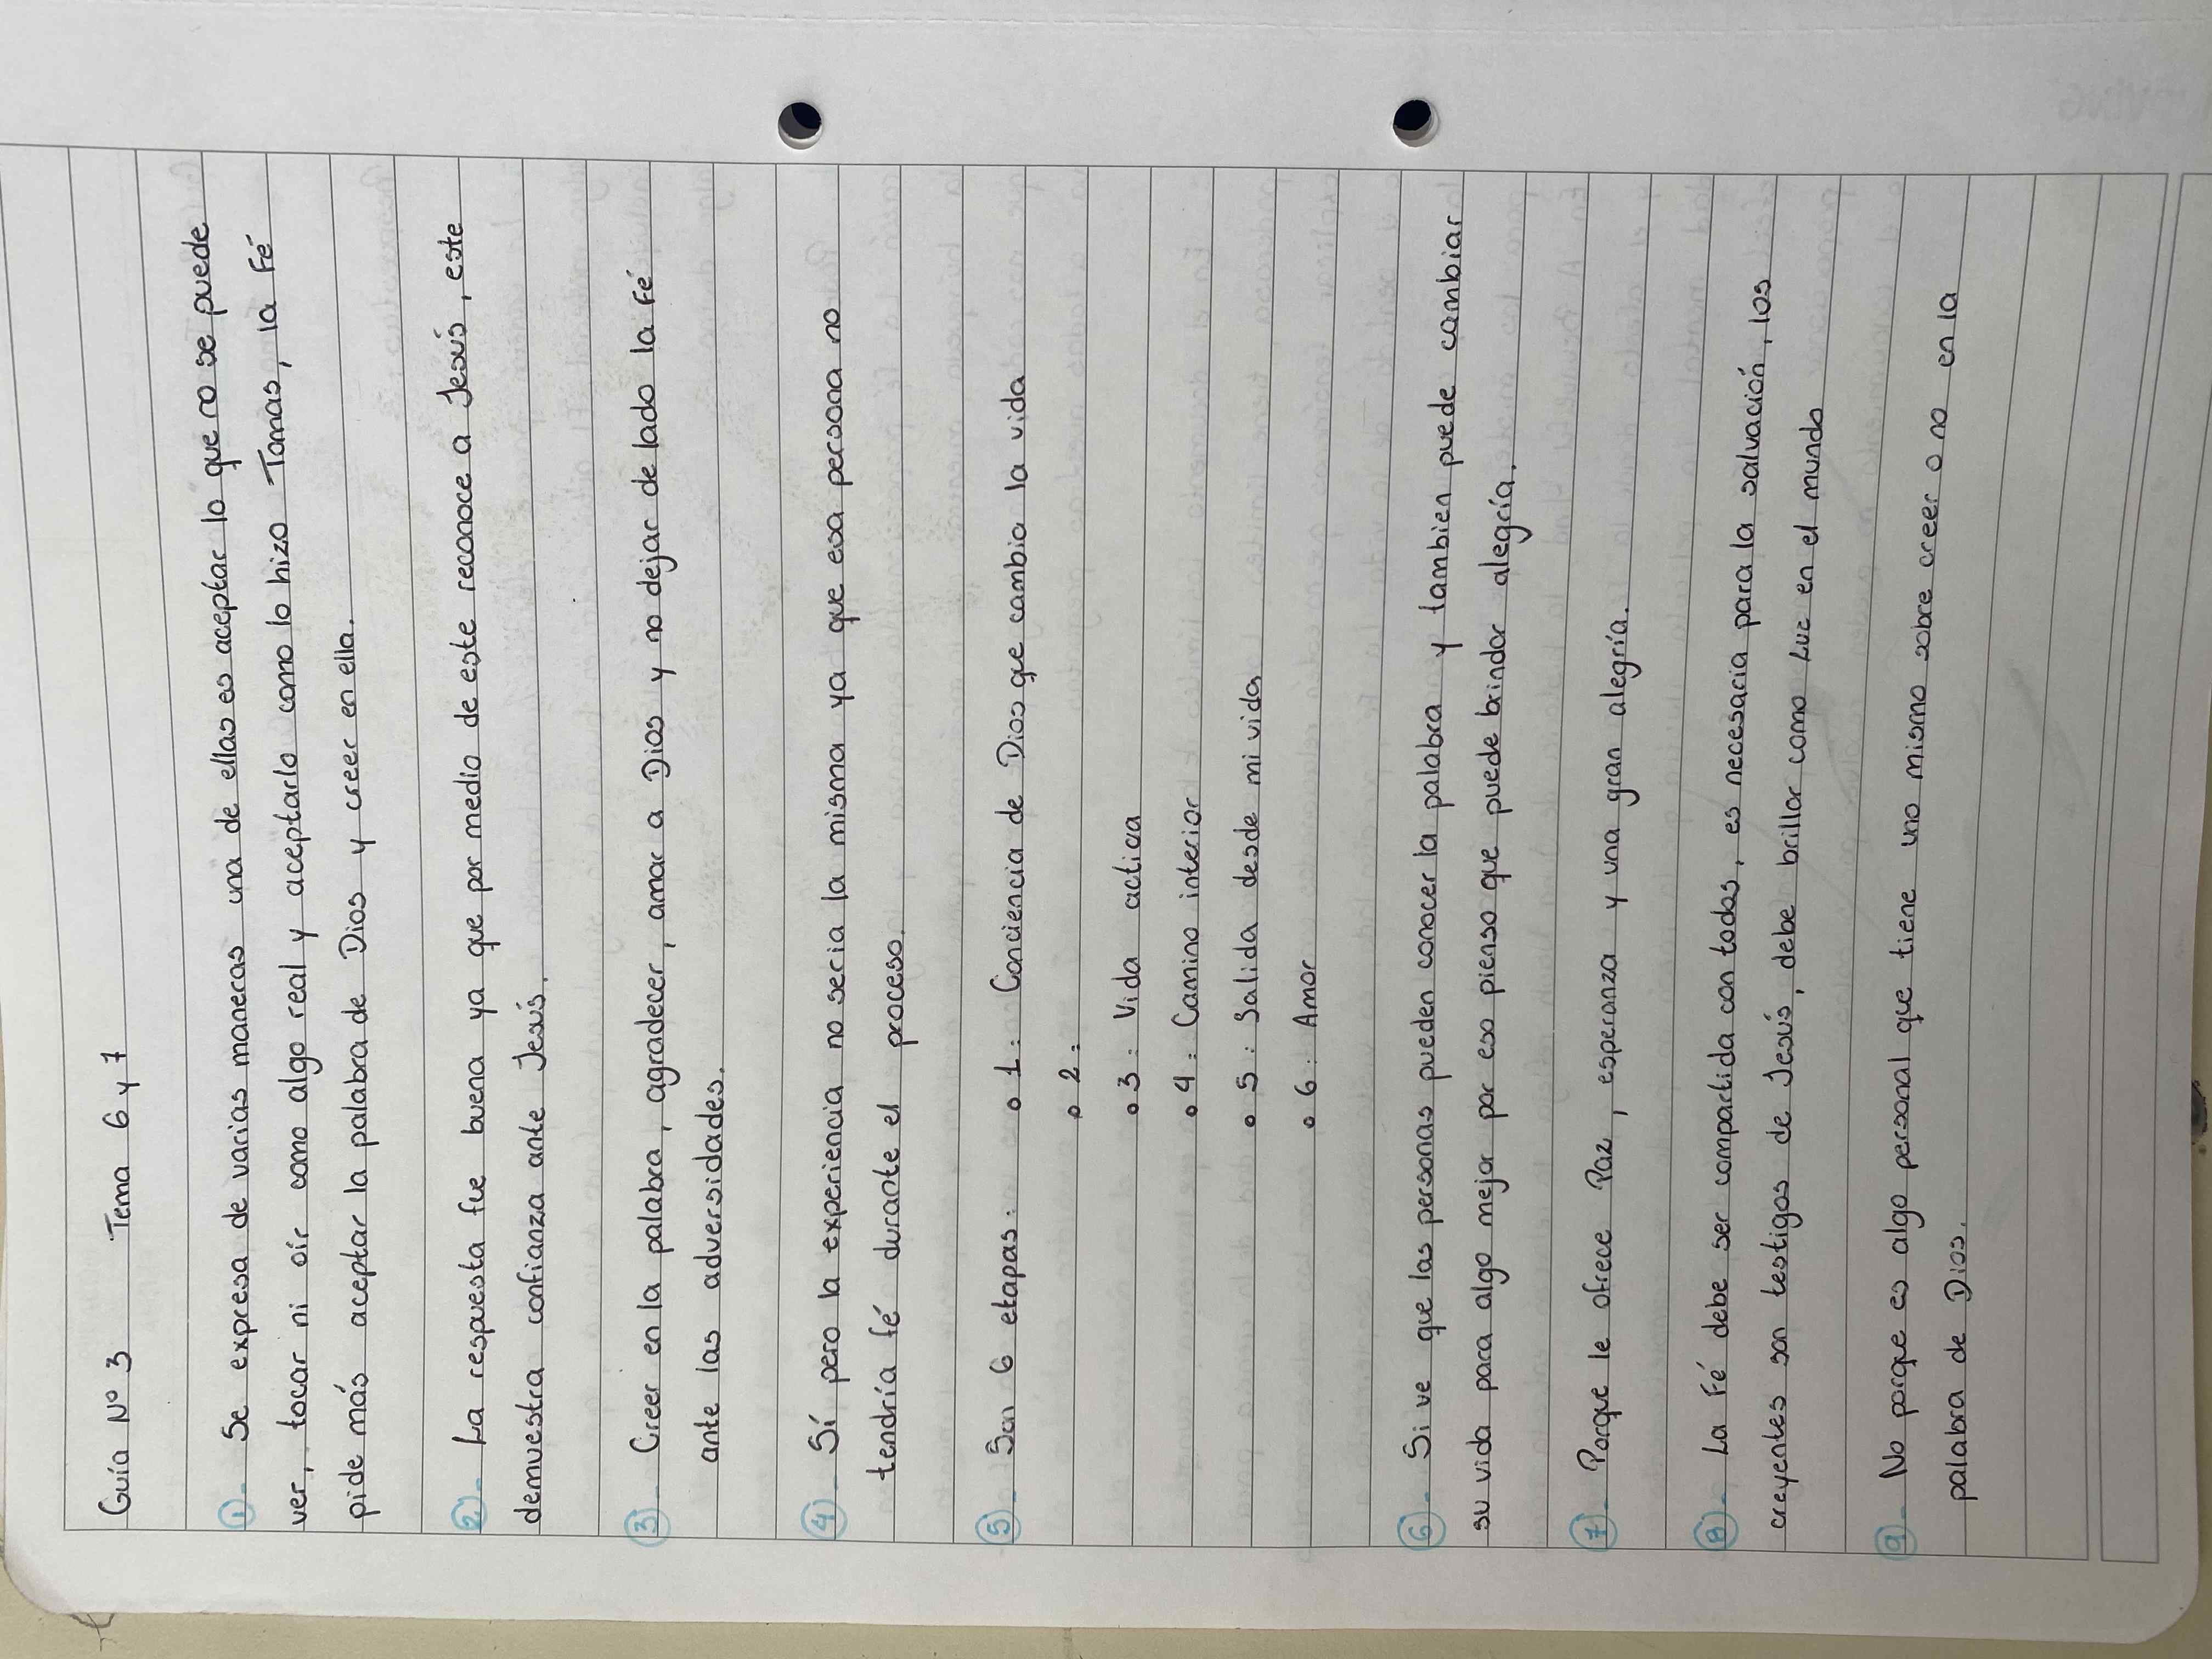 Guía Nº 3 Tema 6 y 7
①- Se expresa de varias maneras una de ellas es aceptar lo que no se puede
ver, tocar ni oír como algo real y aceptarlo como lo hizo Tomas, la Fé
pide más aceptar la palabra de Dios y creer en ella.
②- La respuesta fue buena ya que por medio de este reconoce a Jesús, este
demuestra confianza ante Jesús.
③- Creer en la palabra, agradecer, amar a Dios y no dejar de lado la Fé
ante las adversidades.
④- Sí pero la experiencia no seria la misma ya que esa persona no
tendría fé durante el proceso.
⑤- Son 6 etapas: o 1: Conciencia de Dios que cambio la vida
o 2:
o 3: Vida activa
o 4: Camino interior
o 5: Salida desde mi vida
o 6: Amor
⑥- Si ve que las personas pueden conocer la palabra y tambien puede cambiar
su vida para algo mejor por eso pienso que puede brindar alegría.
⑦- Porque le ofrece Paz, esperanza y una gran alegría.
⑧- La Fé debe ser compartida con todos, es necesaria para la salvación, los
creyentes son testigos de Jesús, debe brillar como Luz en el mundo
⑨- No porque es algo personal que tiene uno mismo sobre creer o no en la
palabra de Dios.